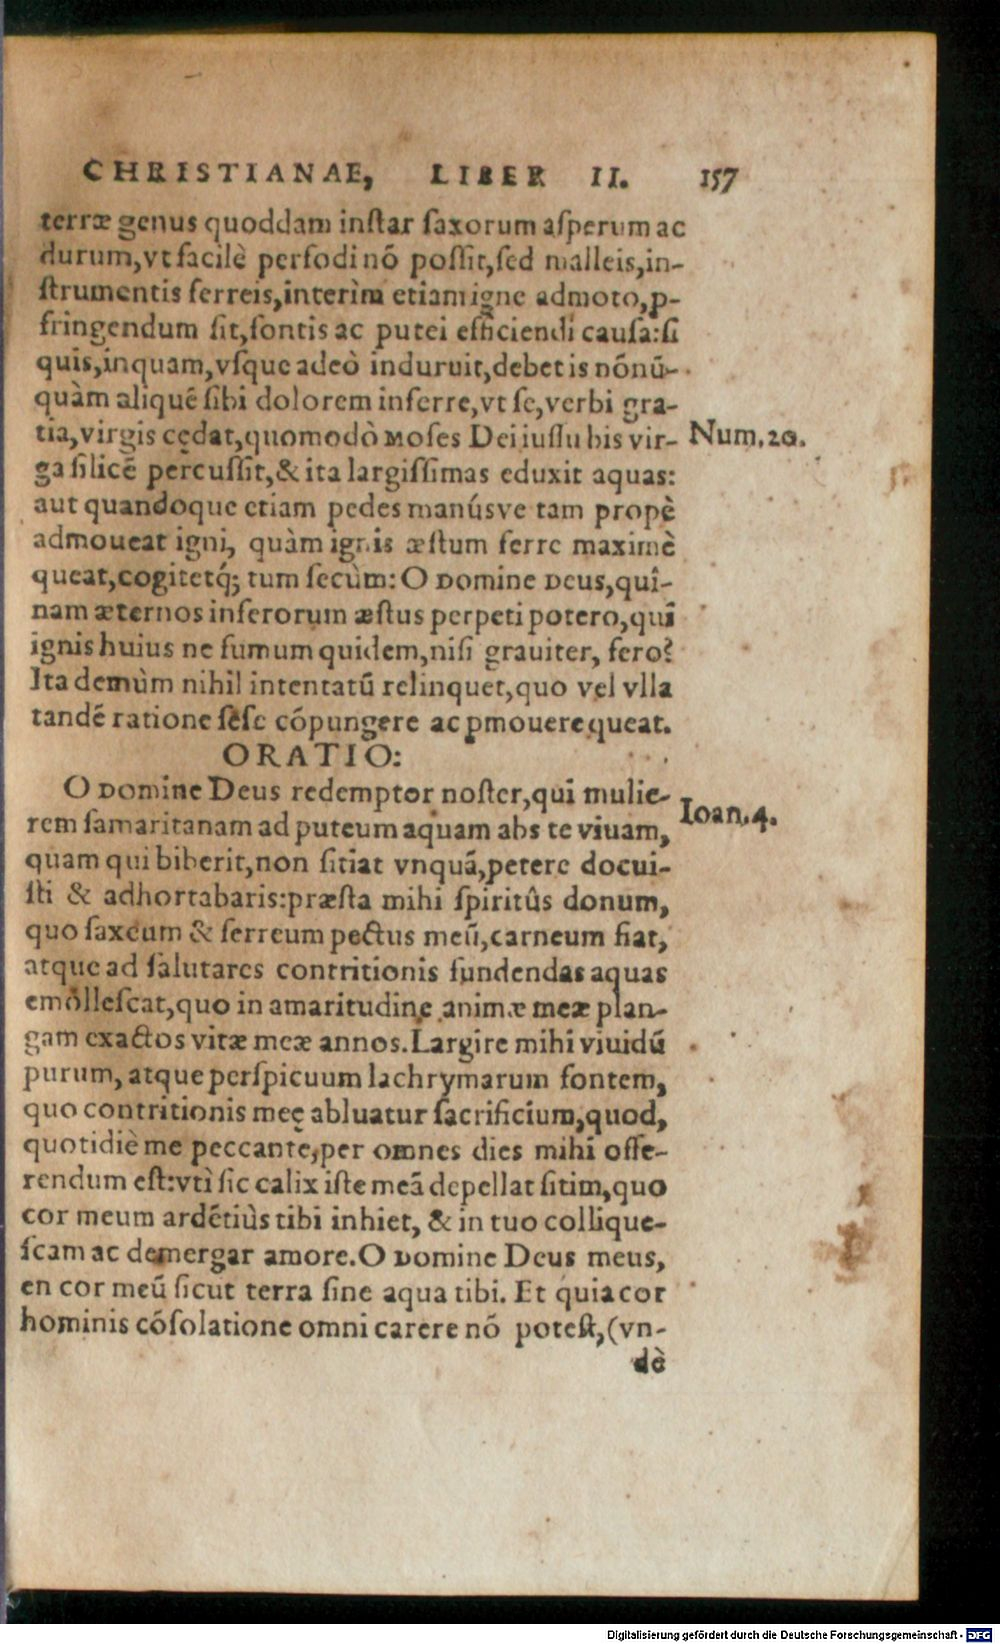 CHRISTIANAE, LIBER II. 157
terræ genus quoddam instar ſaxorum aſperum ac
durum,vt facilè perfodi nō poſſit,ſed malleis,in-
ſtrumentis ferreis,interìm etiam igne admoto,ꝑ-
fringendum ſit,fontis ac putei efficiendi cauſa:ſi
quis,inquam,vſque adeò induruit,debet is nōnū-
quàm aliquē ſibi dolorem inferre,vt ſe,verbi gra-
tia,virgis cędat,quomodò Moſes Dei iuſſu bis vir- Num.20.
ga ſilicē percuſſit,& ita largiſſimas eduxit aquas:
aut quandoque etiam pedes manúsve tam propè
admoueat igni, quàm ignis æſtum ferre maximè
queat,cogitetq́; tum ſecùm: O Domine Deus,quî-
nam æternos inferorum æſtus perpeti potero,qui
ignis huius ne fumum quidem,niſi grauiter, fero?
Ita demùm nihil intentatū relinquet,quo vel vlla
tandē ratione ſeſe cōpungere ac ꝓmouere queat.
ORATIO:
O Domine Deus redemptor noſter,qui mulie-
rem ſamaritanam ad puteum aquam abs te viuam, Ioan.4.
quam qui biberit,non ſitiat vnquā,petere docui-
ſti & adhortabaris:præſta mihi ſpiritûs donum,
quo ſaxeum & ferreum pectus meū,carneum fiat,
atque ad ſalutares contritionis fundendas aquas
emolleſcat,quo in amaritudine animæ meæ plan-
gam exactos vitæ meæ annos.Largire mihi viuidū
purum, atque perſpicuum lachrymarum fontem,
quo contritionis meę abluatur ſacrificium,quod,
quotidiè me peccante,per omnes dies mihi offe-
rendum eſt:vtì ſic calix iſte meā depellat ſitim,quo
cor meum ardētiùs tibi inhiet, & in tuo collique-
ſcam ac demergar amore.O Domine Deus meus,
en cor meū ſicut terra ſine aqua tibi. Et quia cor
hominis cōſolatione omni carere nō poteſt,(vn-
dè
Digitalisierung gefördert durch die Deutsche Forschungsgemeinschaft - DFG